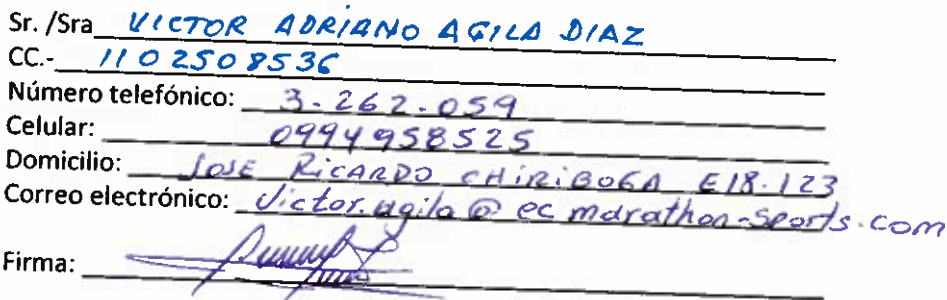 Sr. /Sra VICTOR ADRIANO AGILA DIAZ
CC.- 1102508536
Número telefónico: 3-262-059
Celular: 0994958525
Domicilio: JOSE RICARDO CHIRIBOGA E18-123
Correo electrónico: victor.agila@ec.marathon-sports.com
Firma: